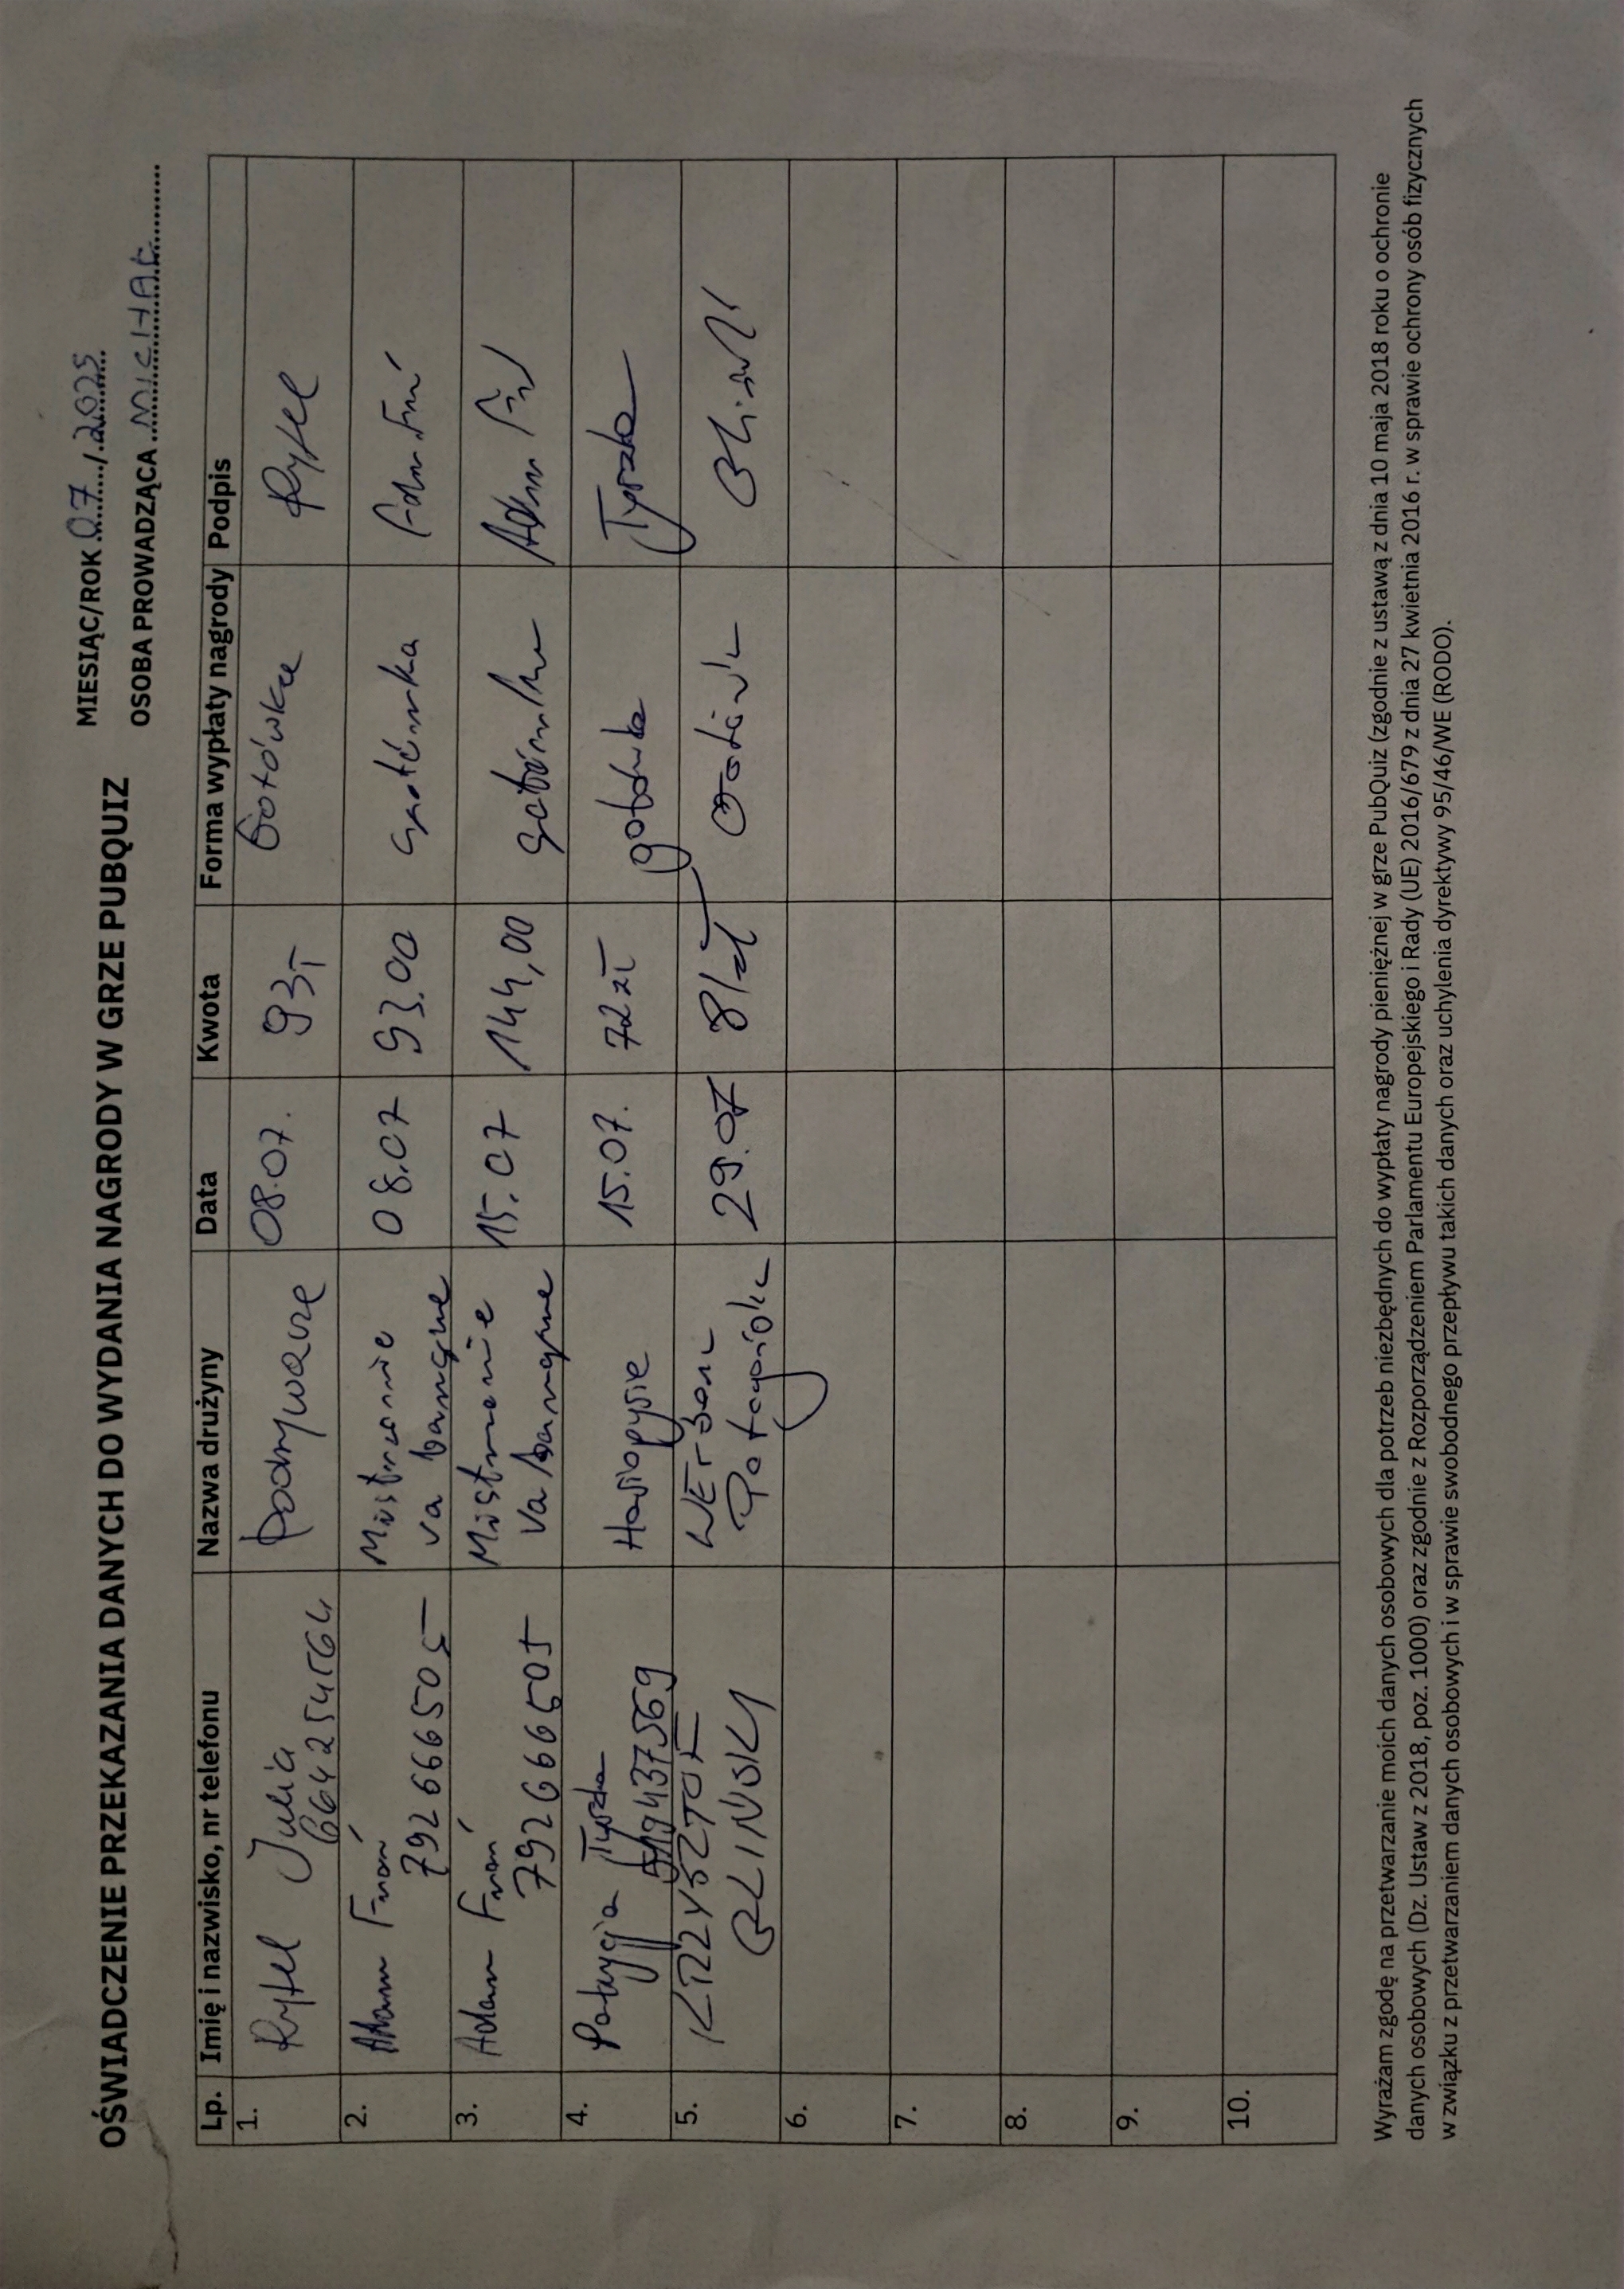 OŚWIADCZENIE PRZEKAZANIA DANYCH DO WYDANIA NAGRODY W GRZE PUBQUIZ
MIESIĄC/ROK 07/2025
OSOBA PROWADZĄCA MICHAŁ
Lp. Imię i nazwisko, nr telefonu Nazwa drużyny Data Kwota Forma wypłaty nagrody Podpis
1. Rytel Julia 664254564 Podrywacze 08.07. 93,- Gotówka Rytel
2. Adam 792666505 Mistrzowie va banque 08.07 93.00 gotówka Adam
3. Adam 792666505 Mistrzowie va banque 15.07 144,00 gotówka Adam
4. Patrycja Tyszka 437569 15.07. 72 zł gotówka Tyszka
5. KRZYSZTOF BLIŃSKI 29.07 81 zł Gotówka
6.
7.
8.
9.
10.
Wyrażam zgodę na przetwarzanie moich danych osobowych dla potrzeb niezbędnych do wypłaty nagrody pieniężnej w grze PubQuiz (zgodnie z ustawą z dnia 10 maja 2018 roku o ochronie
danych osobowych (Dz. Ustaw z 2018, poz. 1000) oraz zgodnie z Rozporządzeniem Parlamentu Europejskiego i Rady (UE) 2016/679 z dnia 27 kwietnia 2016 r. w sprawie ochrony osób fizycznych
w związku z przetwarzaniem danych osobowych i w sprawie swobodnego przepływu takich danych oraz uchylenia dyrektywy 95/46/WE (RODO).